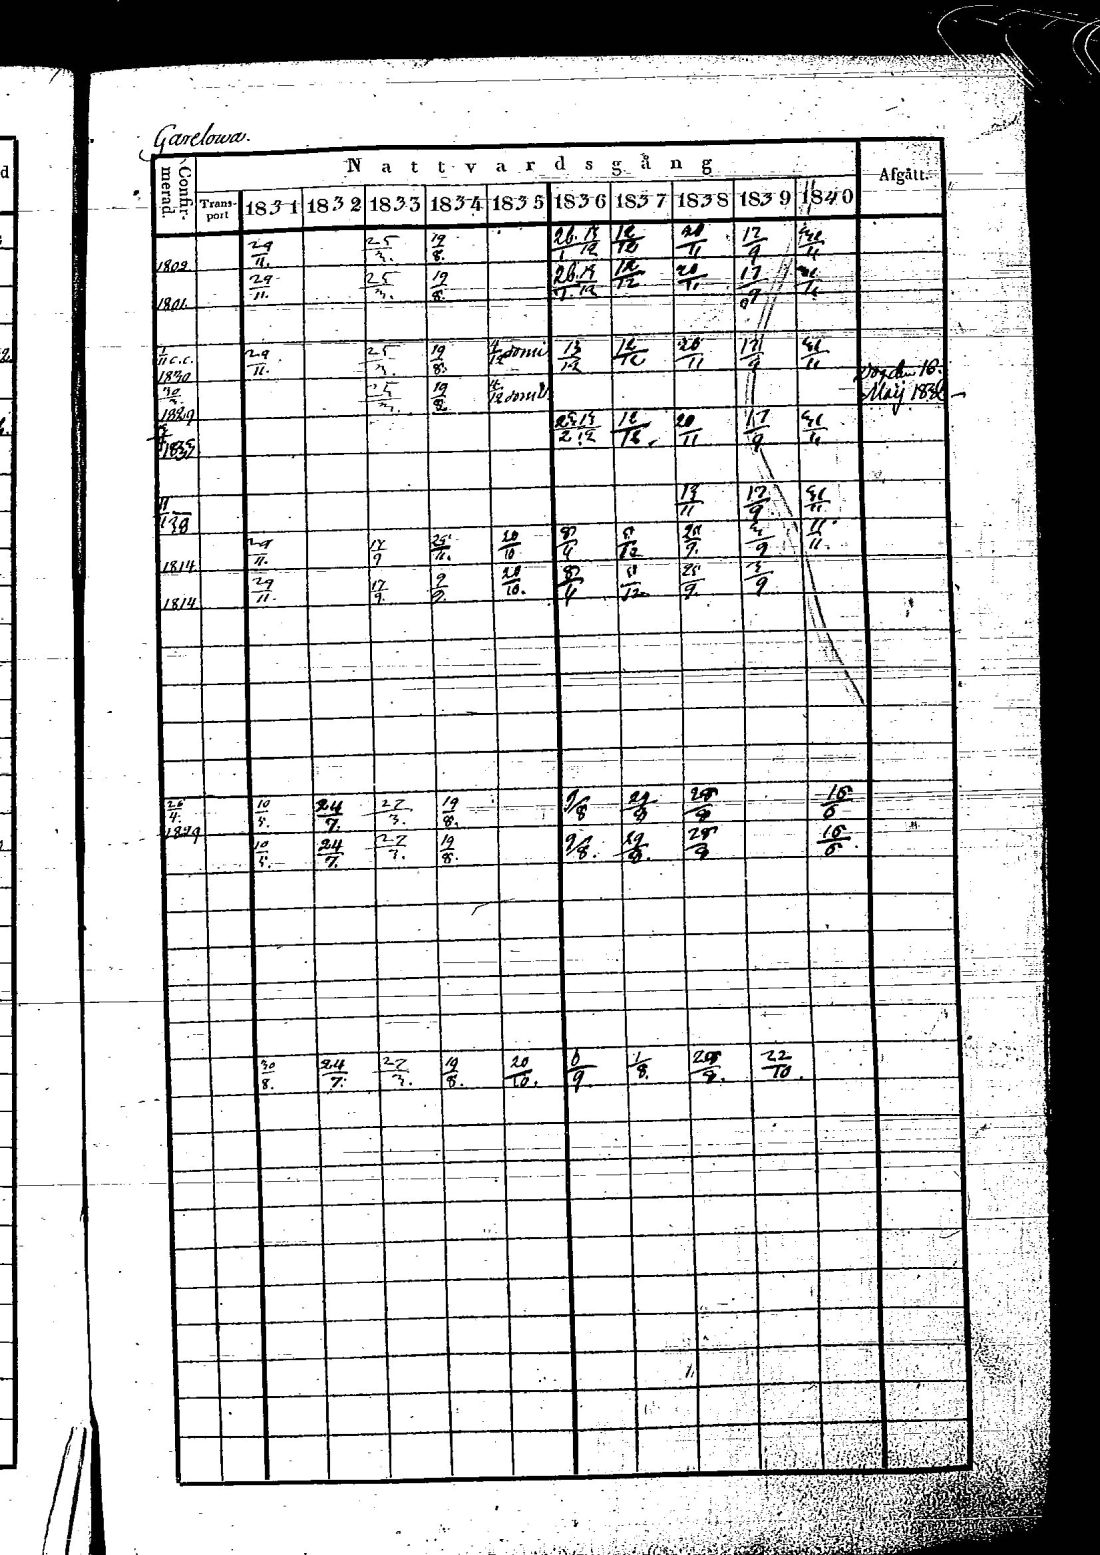 Garelowa.
Confir-merad.
Nattvardsgång
Afgått.
Trans-port 1831 1832 1833 1834 1835 1836 1837 1838 1839 1840
1809 29/11. 25/3. 19/8. 26/1 13/12 12/12 20/11 17/9
1801 29/11. 25/3. 19/8. 26/1 13/12 12/12 20/11 17/9
1/11 c.c. 1830 29/11. 25/3. 19/8. 4/12 domi 13/12 12/12 20/11 17/9
30/3. 1829 25/3. 19/8. 4/12 domi
Maij 1836
12/12 20/11 17/9
11/11 38 13/11 17/9
1814 29/11. 17/9 25/11. 20/10. 8/4 5/12 25/9. 3/9 11/11.
1814 29/11. 17/9. 9/9. 20/10. 8/4 5/12 25/9. 3/9
26/4. 1829 10/5. 24/7. 27/3. 19/8. 9/8 29/8 28/8 16/6
10/5. 24/7. 27/3. 19/8. 9/8. 29/8. 28/8 16/6
30/8. 24/7. 27/3. 19/8. 20/10. 6/9. 1/8. 22/10.